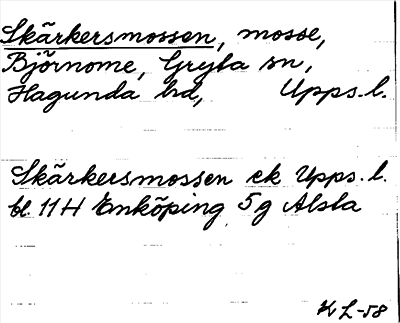 Skärkersmossen, mosse,
Björnome, Gryta sn,
Hagunda hd, Upps. l.
Skärkersmossen ek Upps. l.
bl. 11H Enköping 5g Alsta
KL-58